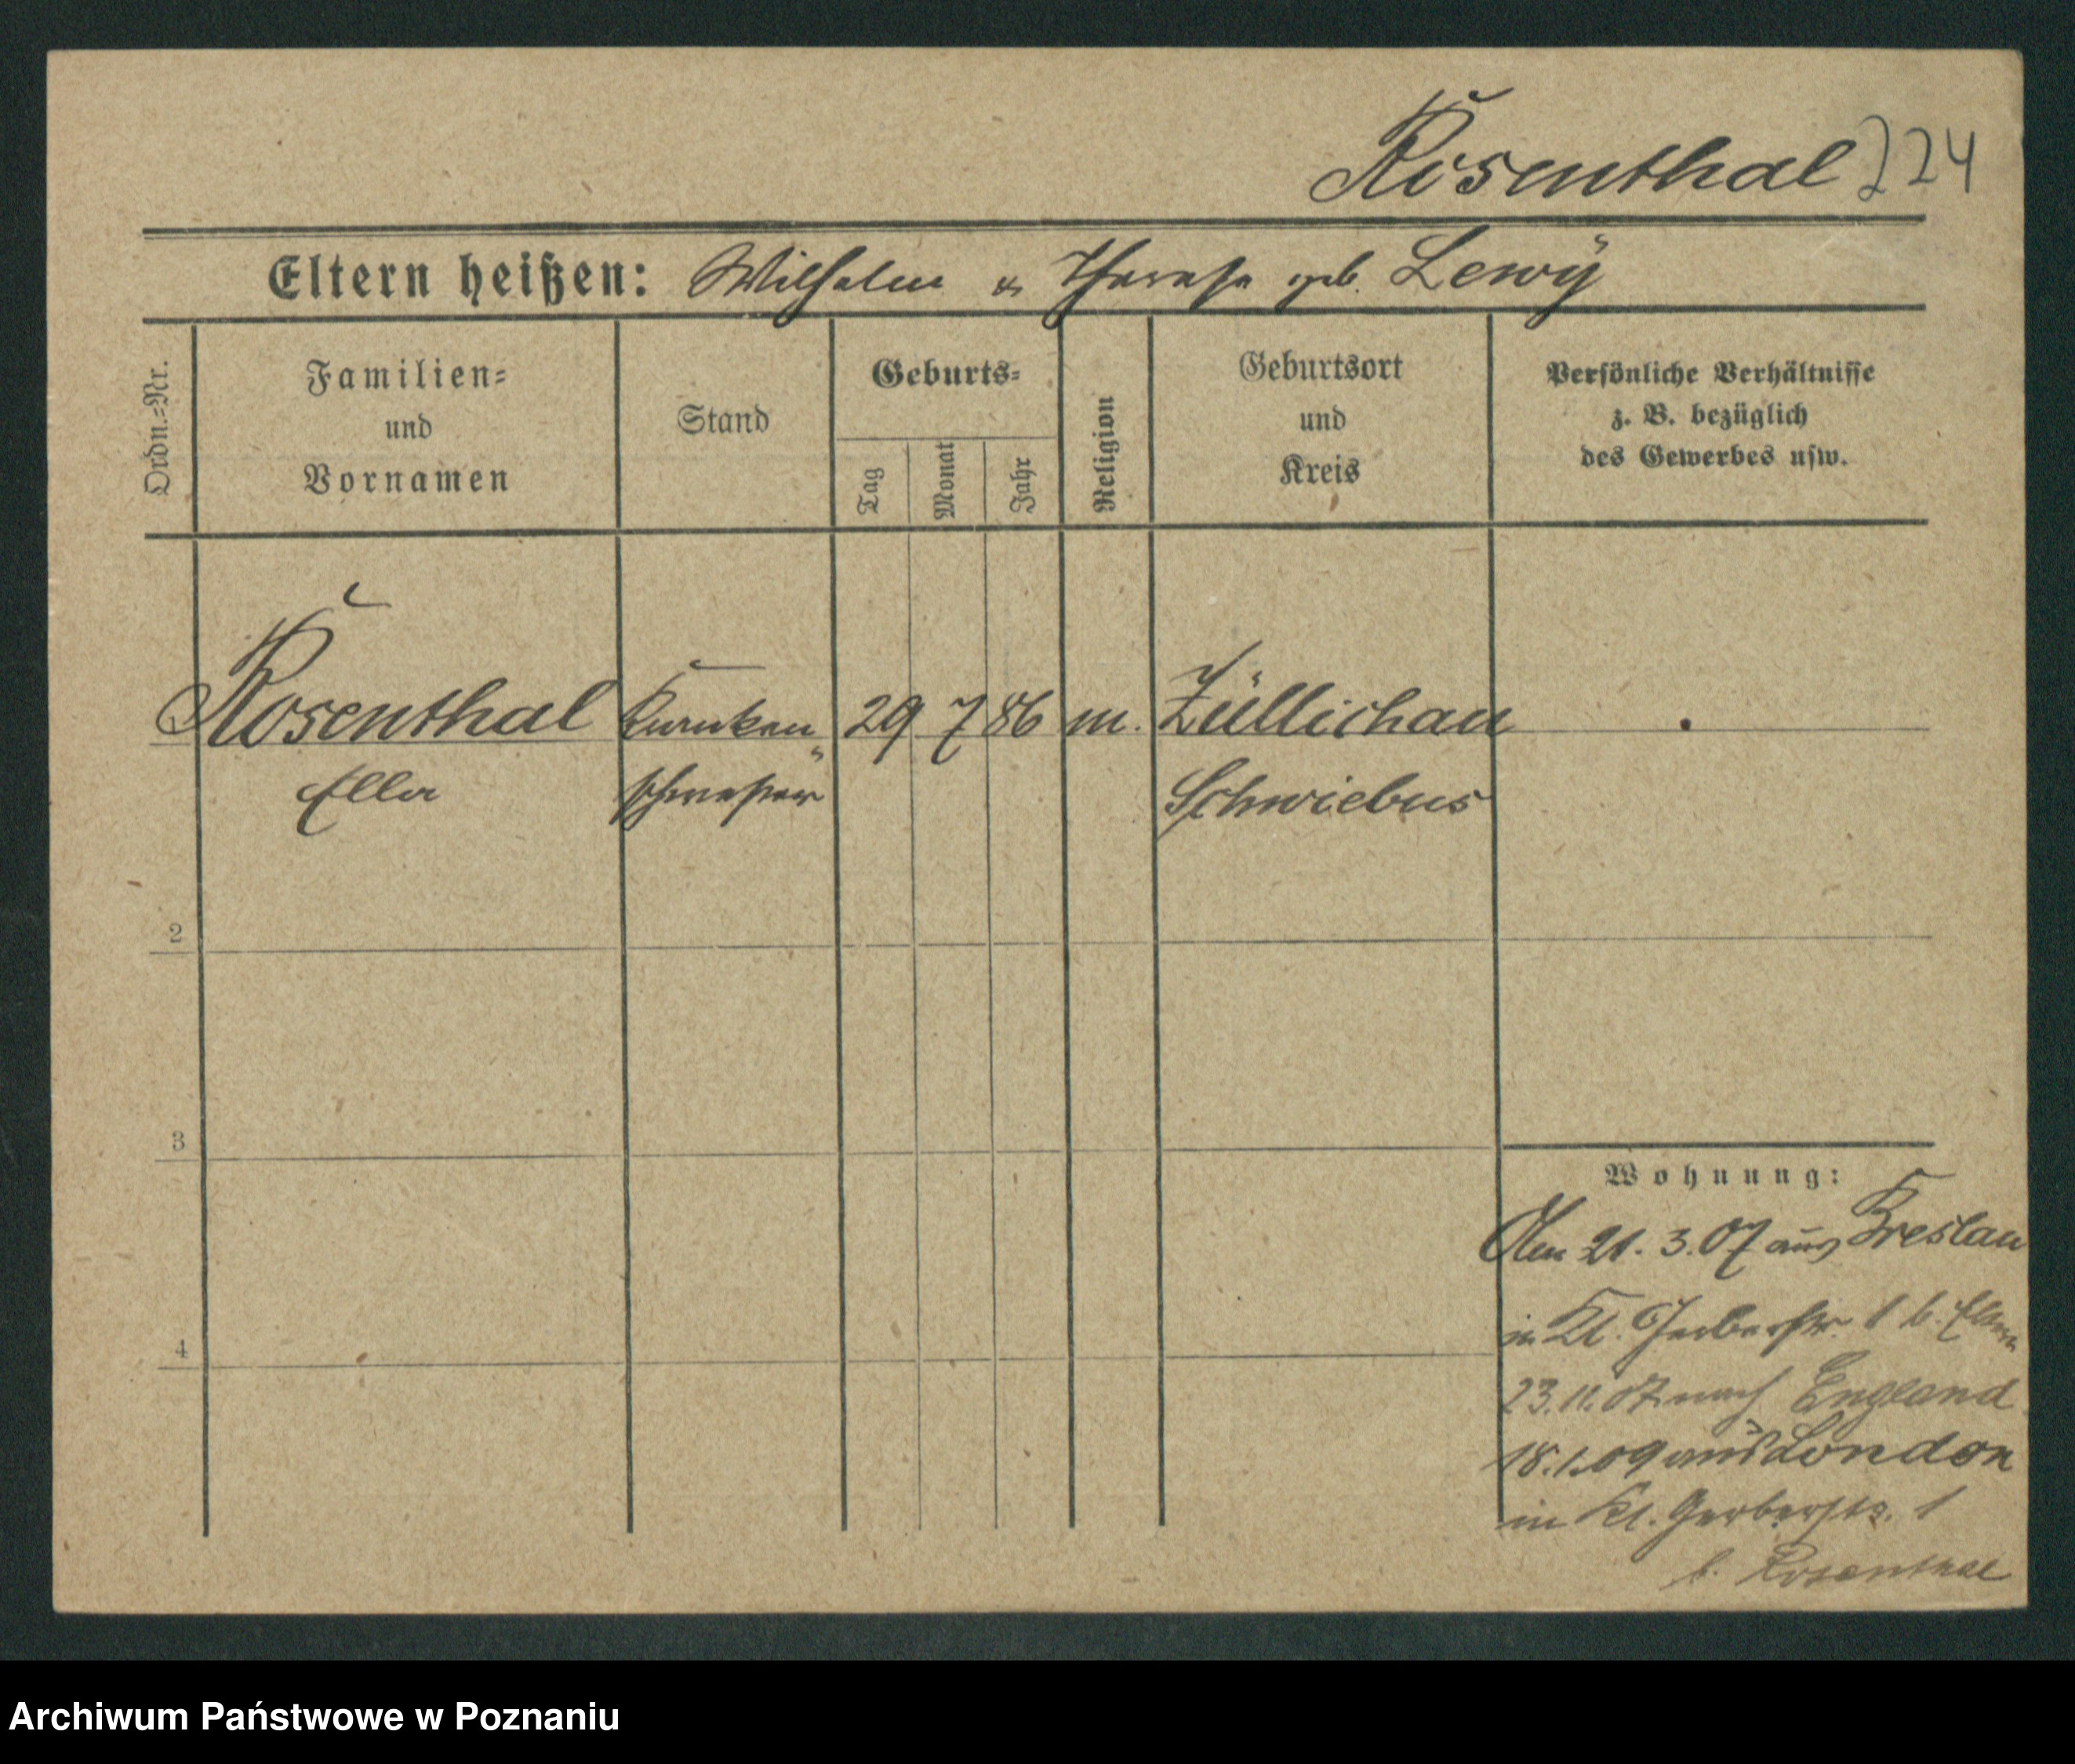 Rosenthal 224
Eltern heißen: Wilhelm u. Therese geb. Lewÿ
Ordn.-Nr.
Familien-
und
Vornamen
Stand
Geburts-
Tag
Monat
Jahr
Religion
Geburtsort
und
Kreis
Persönliche Verhältnisse
z. B. bezüglich
des Gewerbes usw.
Rosenthal Kranken 29 7 86 m. Züllichau
Ella schwester Schwiebus
2
3
4
Wohnung:
Den 21. 3. 07 aus Breslau
in Kl. Gerberstr. 1 b. Eltern
23. 11. 07 nach England
18. 1. 09 aus London
in Kl. Gerberstr. 1
b. Rosenthal
Archiwum Państwowe w Poznaniu